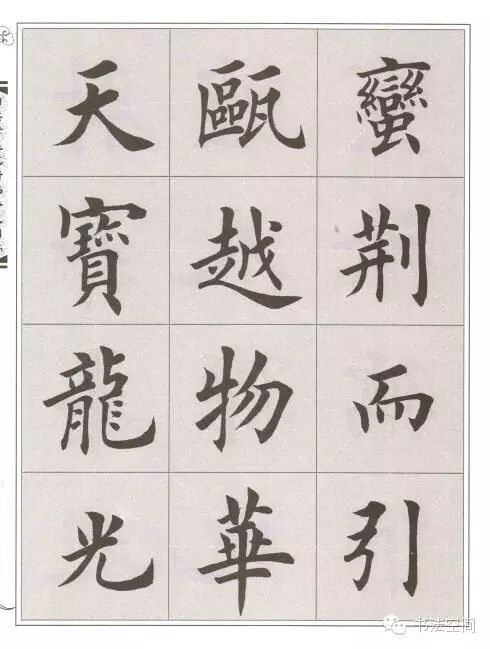 蠻荊而引
甌越物華
天寶龍光
书法空间